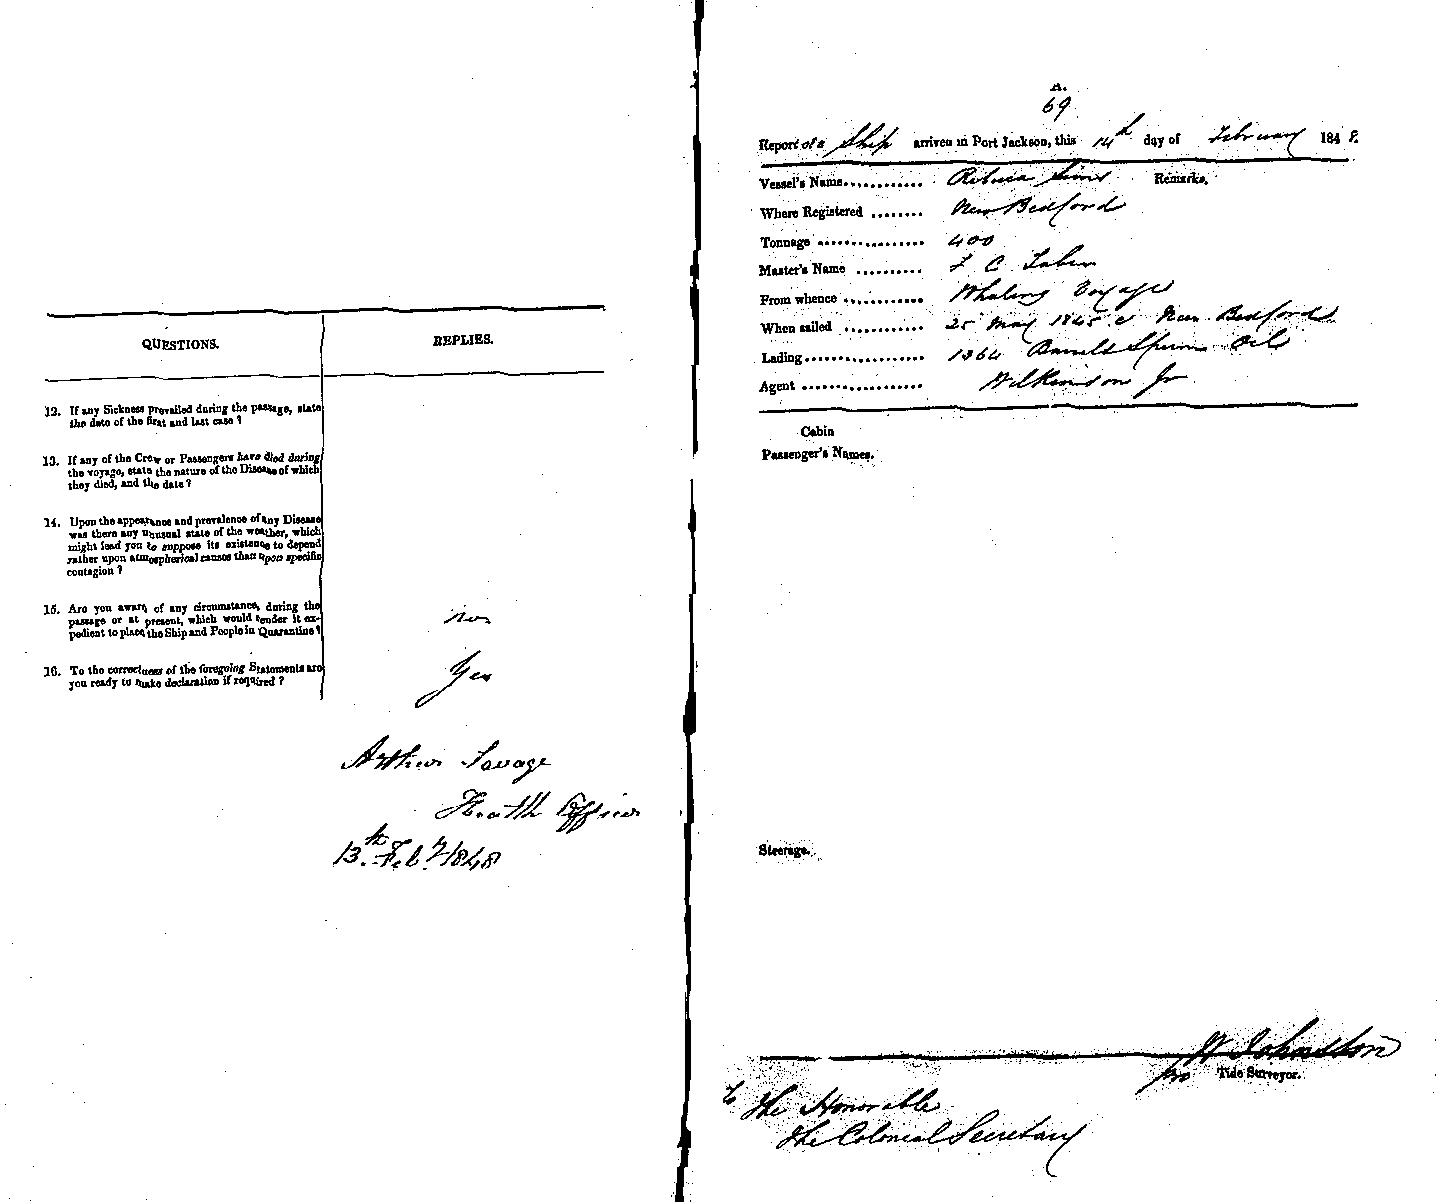 QUESTIONS. REPLIES.
12. If any Sickness prevailed during the passage, state
the date of the first and last case?
13. If any of the Crew or Passengers have died during
the voyage, state the nature of the Disease of which
they died, and the date?
14. Upon the appearance and prevalence of any Disease
was there any unusual state of the weather, which
might lead you to suppose its existence to depend
rather upon atmospherical causes than upon specific
contagion?
15. Are you aware of any circumstance, during the
passage or at present, which would render it ex-
pedient to place the Ship and People in Quarantine? no
16. To the correctness of the foregoing Statements are
you ready to make declaration if required? Yes
Arthur Savage
Health Officer
13th Feby 1848
A.
69
Report of a Ship arrived in Port Jackson, this 14th day of February 1848.
Vessel's Name............ Rebecca Sims Remarks.
Where Registered ........ New Bedford
Tonnage ................ 400
Master's Name .......... C Taber
From whence ............ Whaling Voyage
When sailed ............ 25 May 1845 New Bedford
Lading.................. 1364 Barrels Sperm Oil
Agent .................. Wilkinson Jr
Cabin
Passenger's Names.
Steerage.
W Johnston
pro Tide Surveyor.
To
The Honorable
The Colonial Secretary